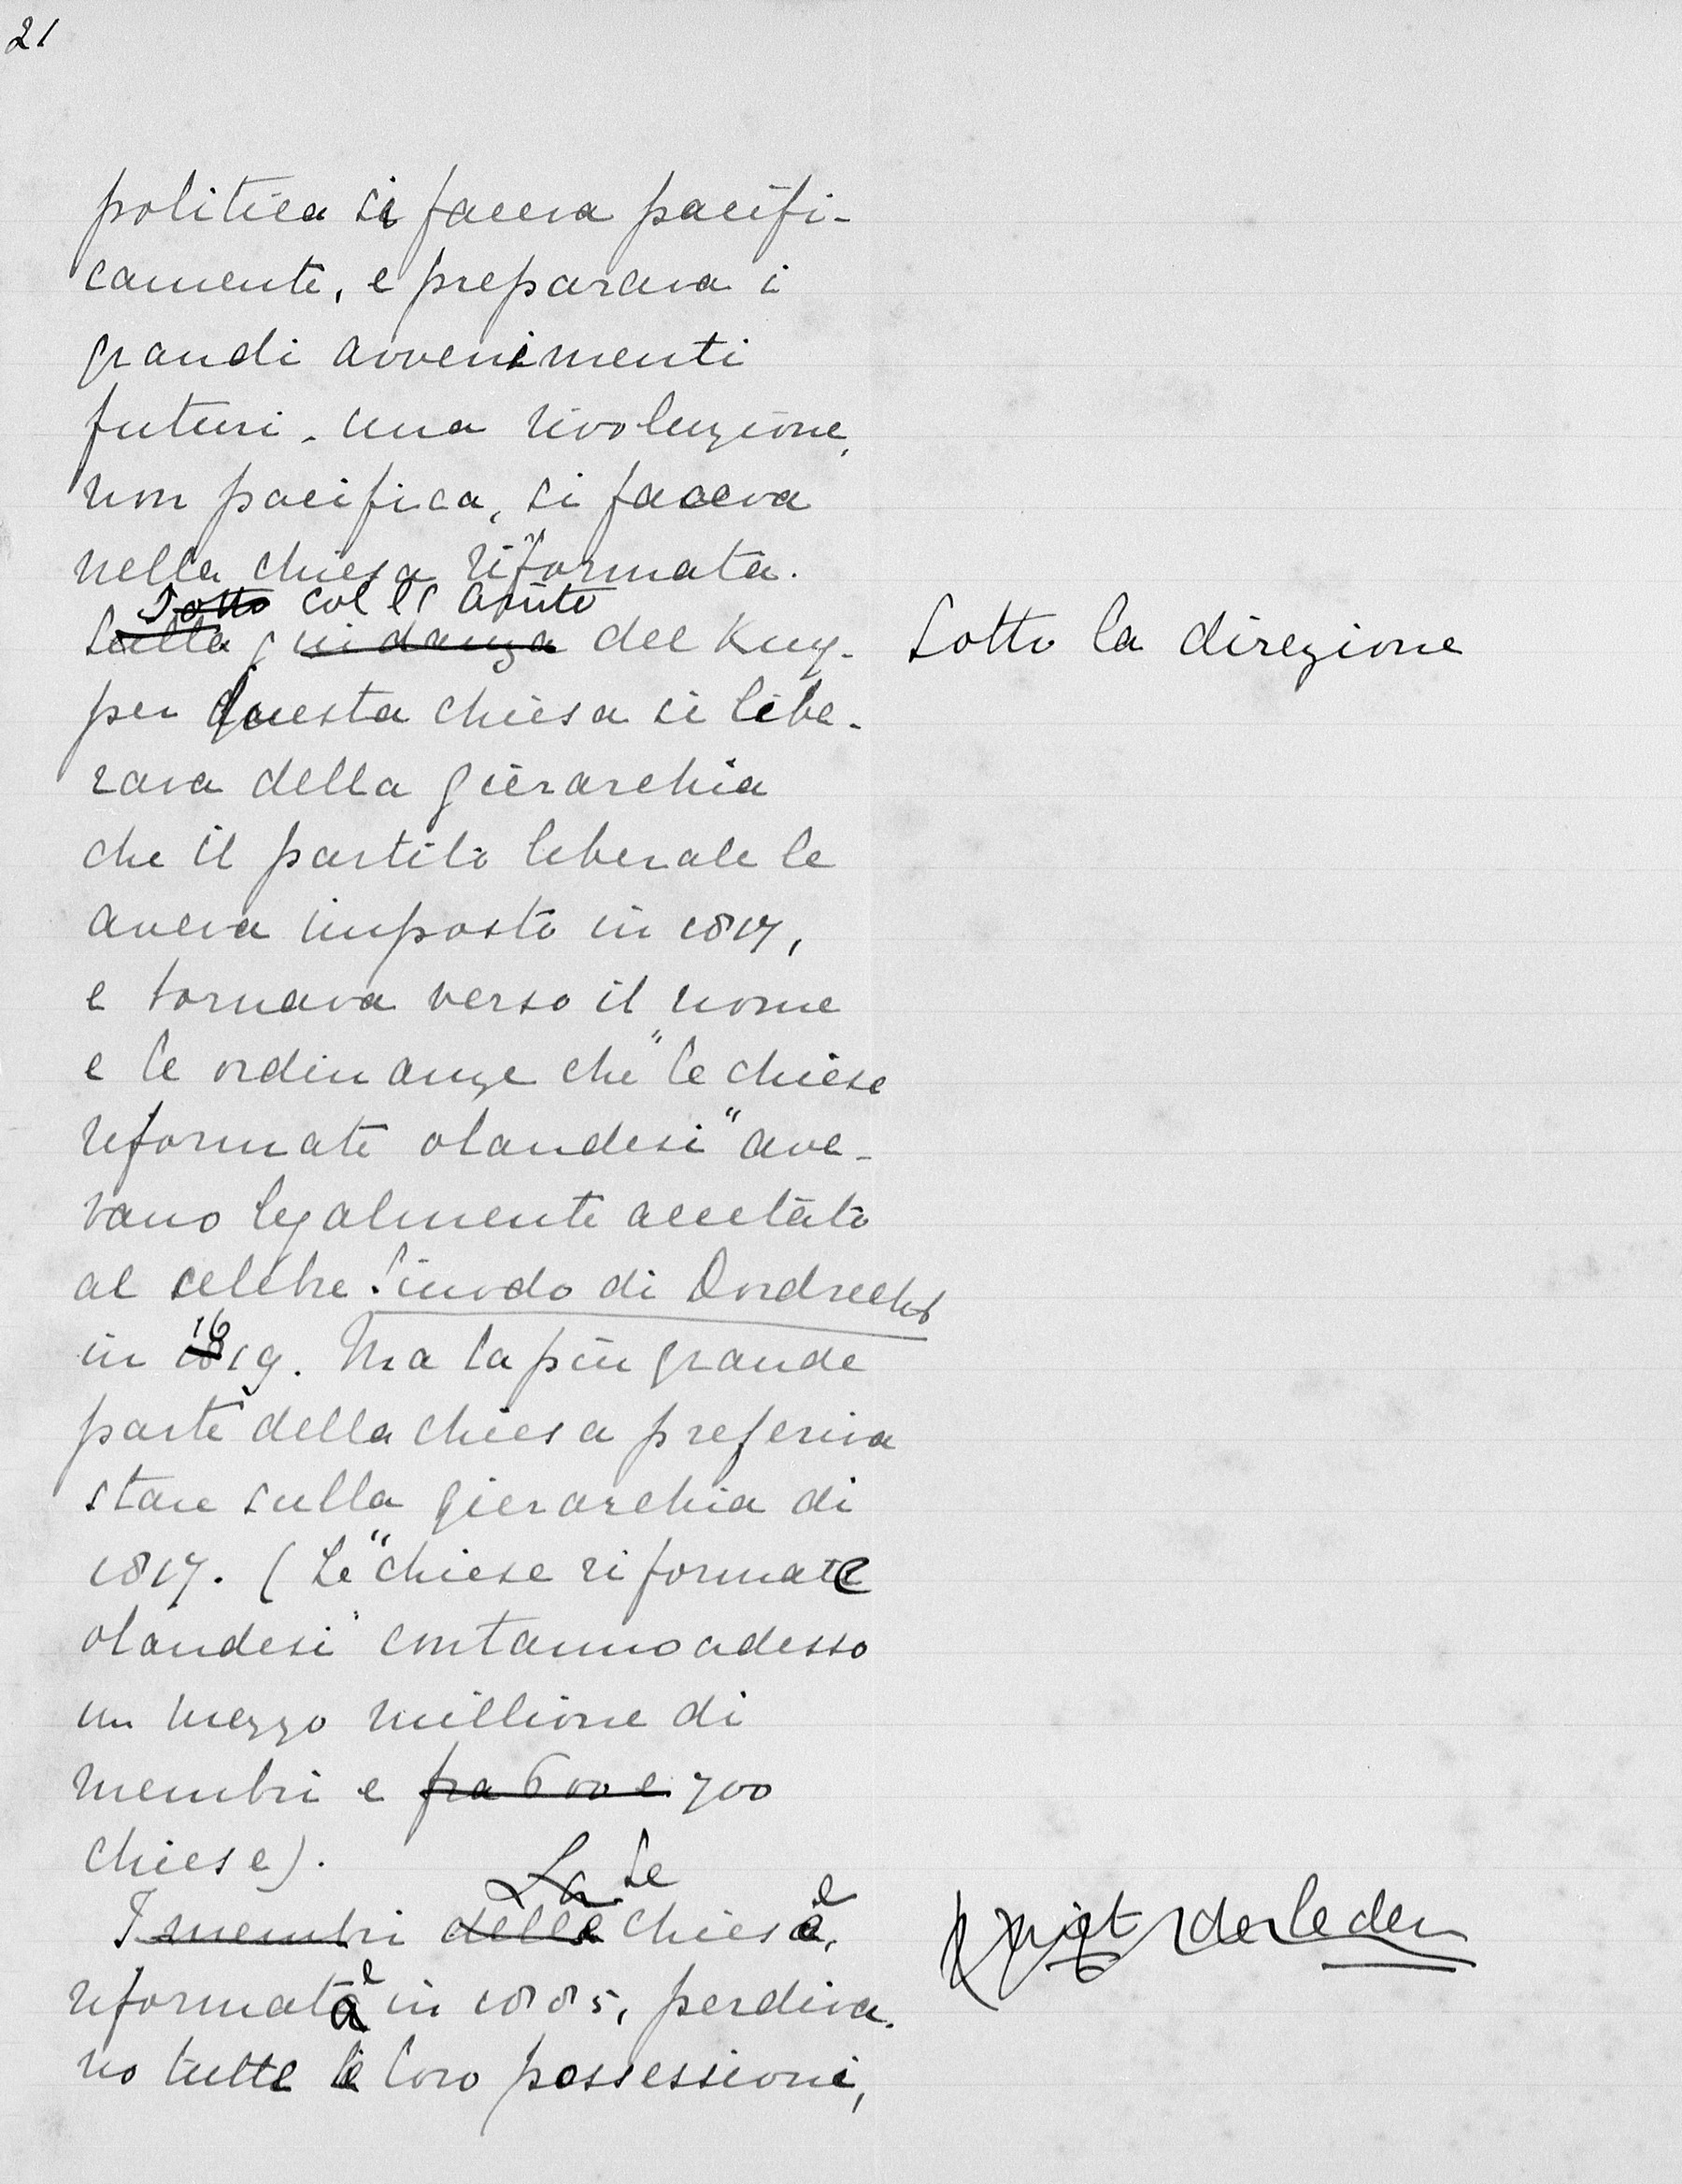 21
politica si faceva pacifi-
camente, e preparava i
grandi avvenimenti
futuri. Una rivoluzione,
non pacifica, si faceva
nella chiesa riformata.
Sotto col
Sulla guidanza del Kuy-
Sotto la direzione
per questa chiesa si libe-
rava della gierarchia
che il partito liberale le
aveva imposto in 1817,
e tornava verso il nome
e le ordinanze che "le chiese
reformate olandesi" ave-
vano legalmente accetato
al celebre Sinodo di Dordrecht
16
in 1819. Ma la più grande
parte della chiesa preferiva
stare sulla gierarchia di
1817. (Le "chiese riformate
olandesi" contanno adesso
un mezzo millione di
membri e fra 600 e 700
chiese).
La Le
I membri delle chiese,
reformate in 1885, perdiva-
no tutte le loro possessioni,